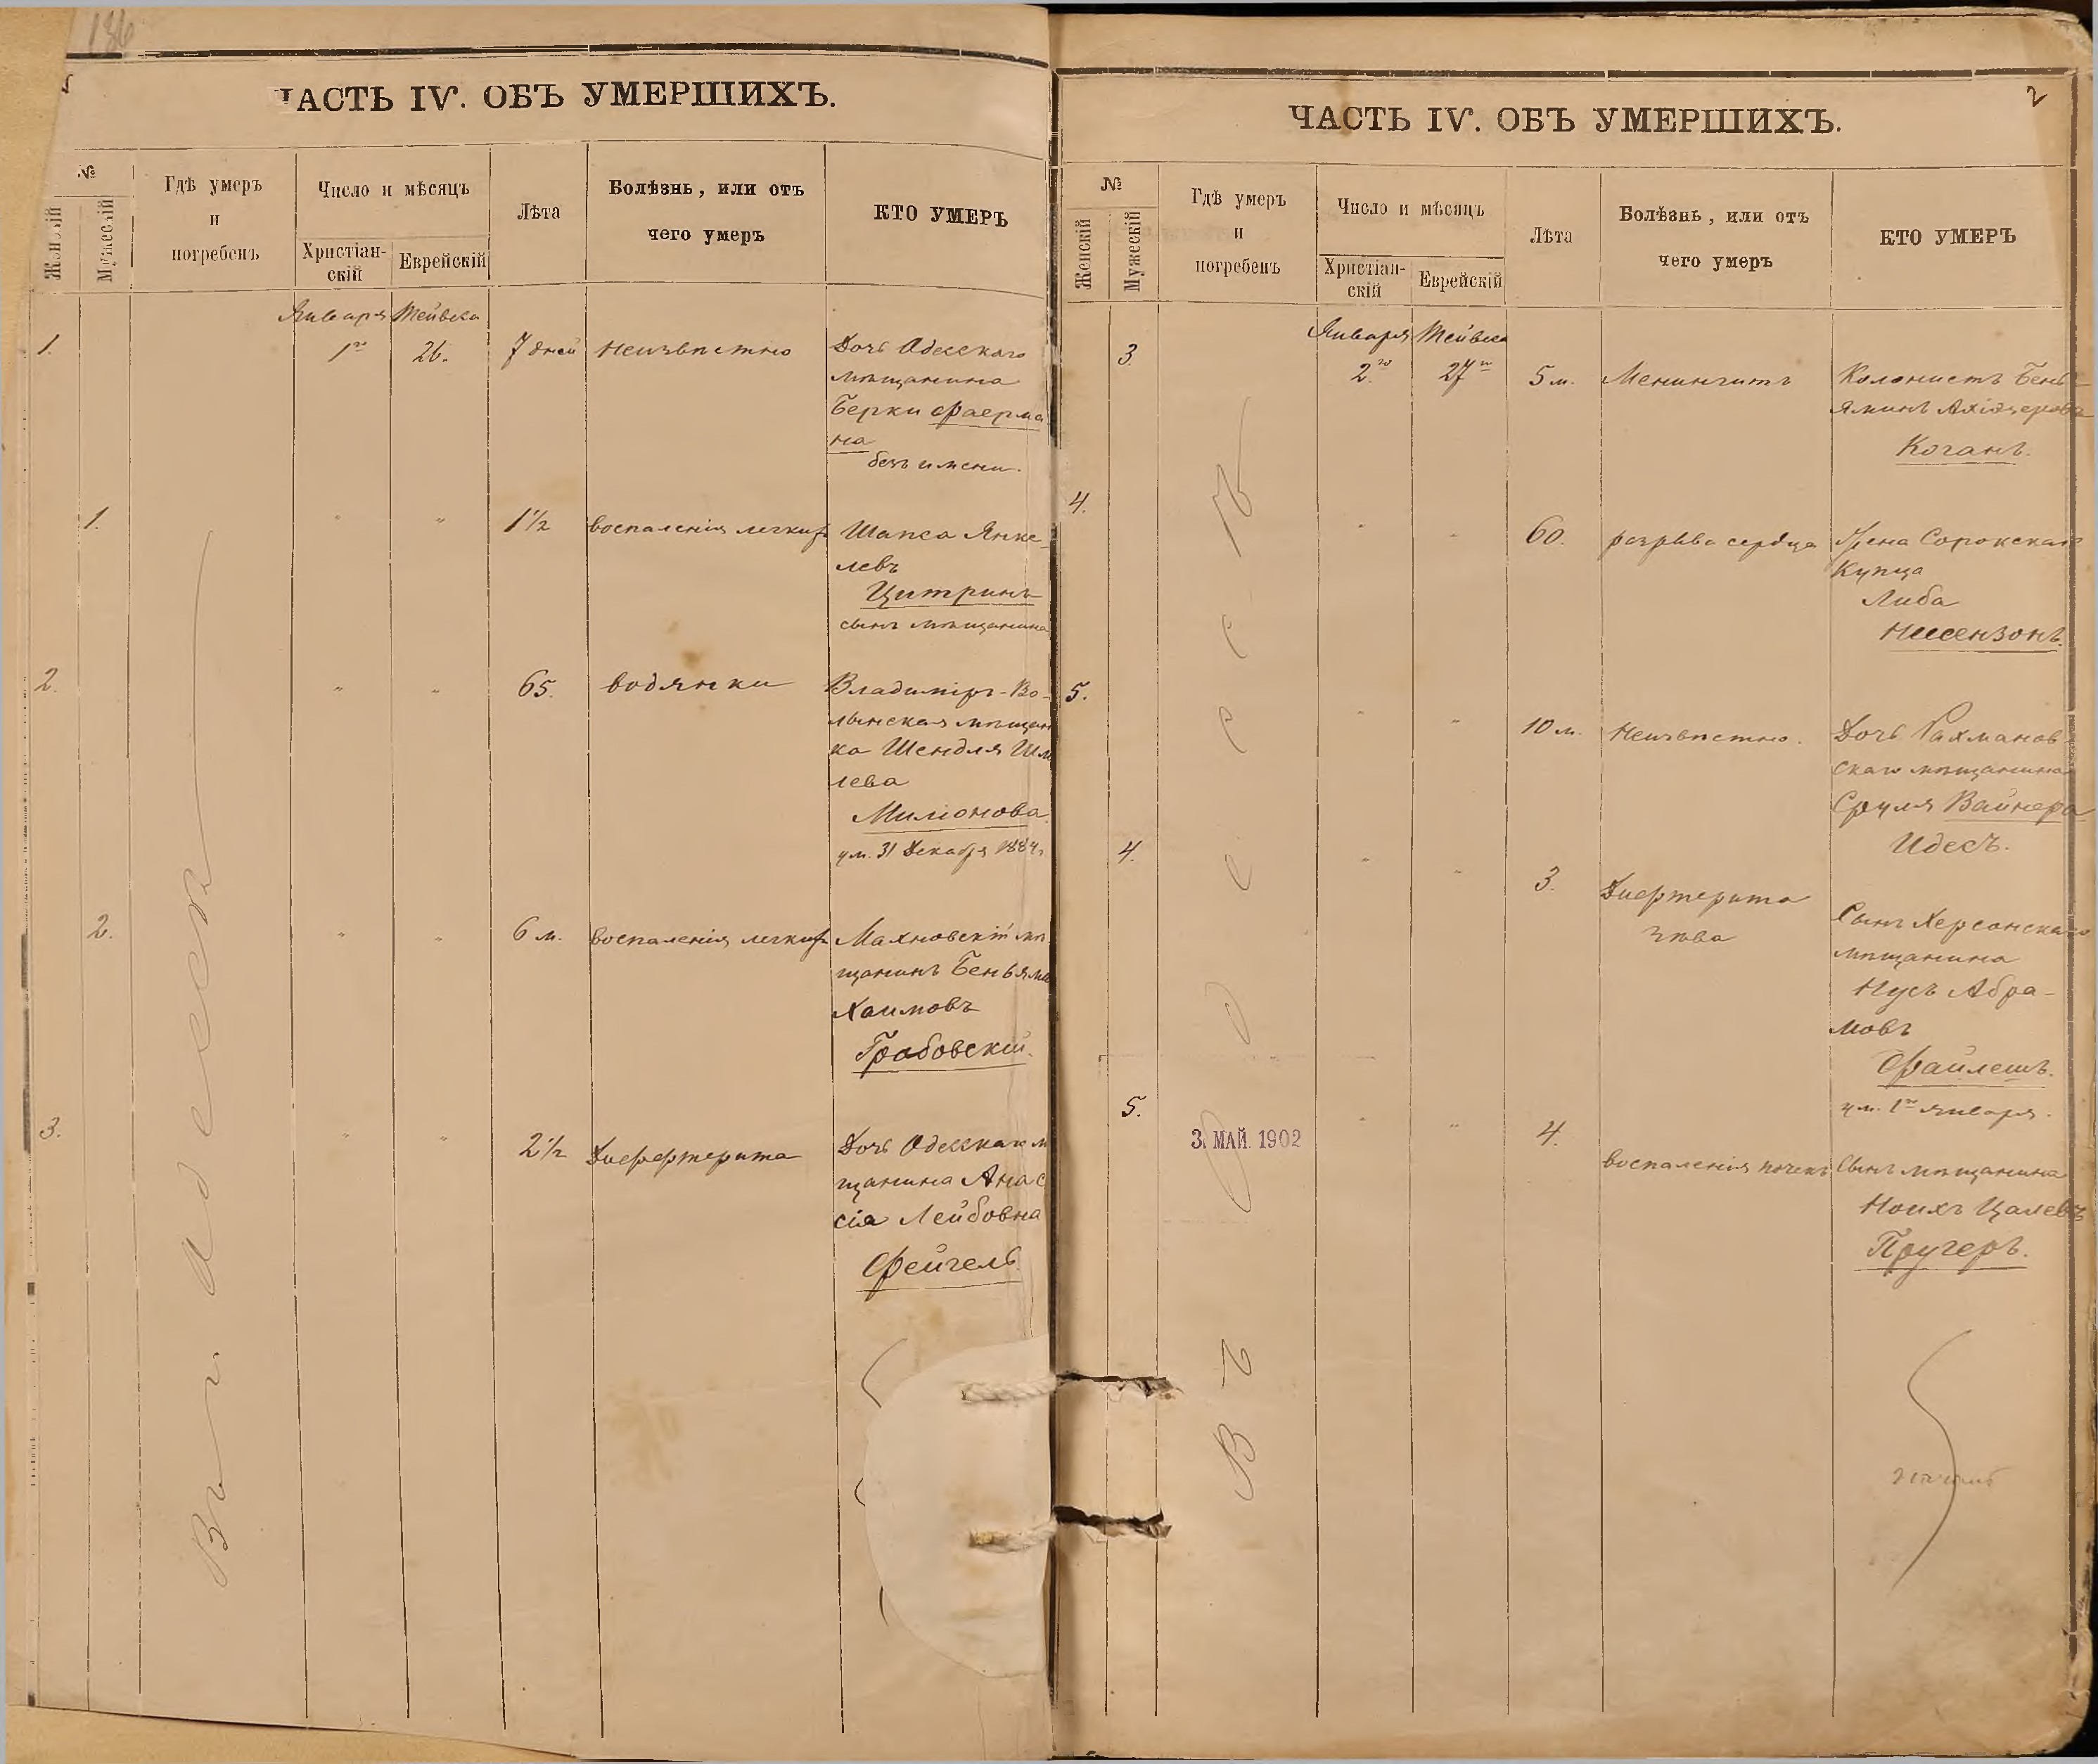 186
ЧАСТЬ IV. ОБЪ УМЕРШИХЪ.
№
Женскій
Мужескій
Гдѣ умеръ
и
погребенъ
Число и мѣсяцъ
Христіан-
скій
Еврейскій
Лѣта
Болѣзнь, или отъ
чего умеръ
КТО УМЕРЪ
Въ г. Одессѣ
Января Тейвеса
1. 1го 26. 7 дней Неизвѣстно Дочь Одесскаго
мѣщанина
Берки Фаерма
на
безъ имени.
1. " " 1½ воспаленія легкихъ Шапса Янке-
левъ
Цитринъ
сынъ мѣщанина
2. " " 65. водянки Владиміръ-Во-
лынская мѣщан
ка Шендля Шм
лева
Миліонова
ум. 31 Декабря 1884г.
2. " " 6 м. воспаленія легкихъ Махновскій мѣ
щанинъ Беньями
Хаимовъ
Грабовскій.
3. " " 2½ Дифтерита Дочь Одесскаг м
щанина Анас
сіа Лейбовна
Фейгель.
2
ЧАСТЬ IV. ОБЪ УМЕРШИХЪ.
№
Женскій
Мужескій
Гдѣ умеръ
и
погребенъ
Число и мѣсяцъ
Христіан-
скій
Еврейскій
Лѣта
Болѣзнь, или отъ
чего умеръ
КТО УМЕРЪ
Въ Одессѣ
Января Тейвеса
3. 2го 27го 5 м. Менингитъ Колонистъ Бень-
яминъ Ахіезерова
Коганъ.
4. " " 60. разрыва сердца Жена Сорокскаго
Купца
Либа
Нисензонъ.
5. " " 10 м. Неизвѣстно. Дочь Рахманов-
скаго мѣщанина
Сруля Вайнера
Идесъ.
4. " " 3. Дифтерита
зѣва
Сынъ Херсонскаго
мѣщанина
Нусъ Абра-
мовъ
Файлешъ.
ум. 1го января.
5. " " 4. воспаленія почекъ Сынъ мѣщанина
Ноихъ Цалевъ
Пругеръ.
3. МАЙ. 1902